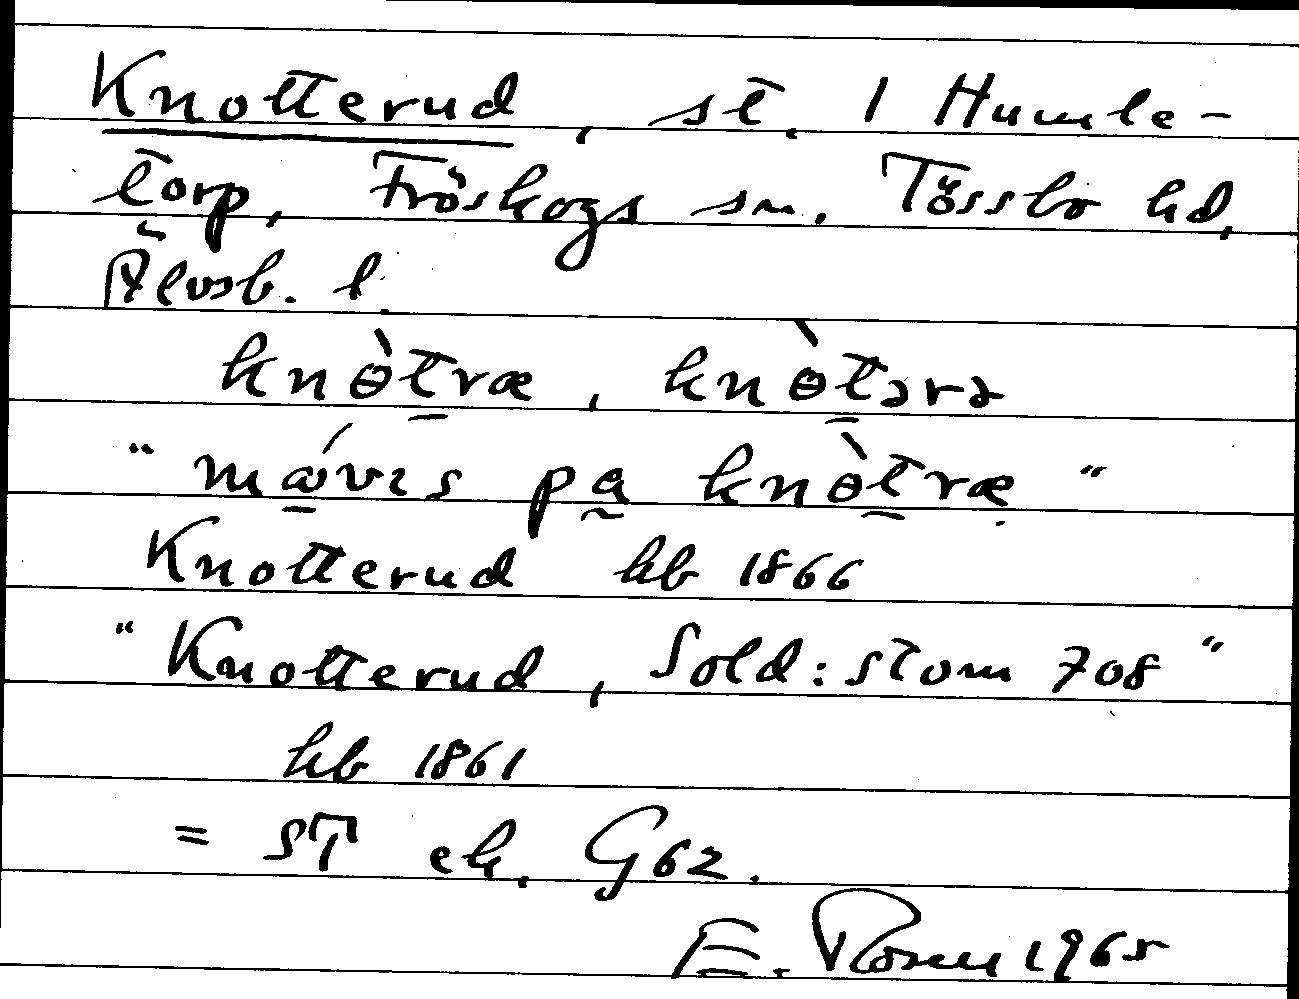 Knotterud, st. 1 Humle-
torp, Fröskogs sn, Tössbo hd,
Älvsb. l.
knètræ, knètərə
"mávɪs pa knètræ"
Knotterud hb 1866
"Knotterud, Sold:stom 708"
hb 1861
= ST ek. G62.
E. Rosen 1965